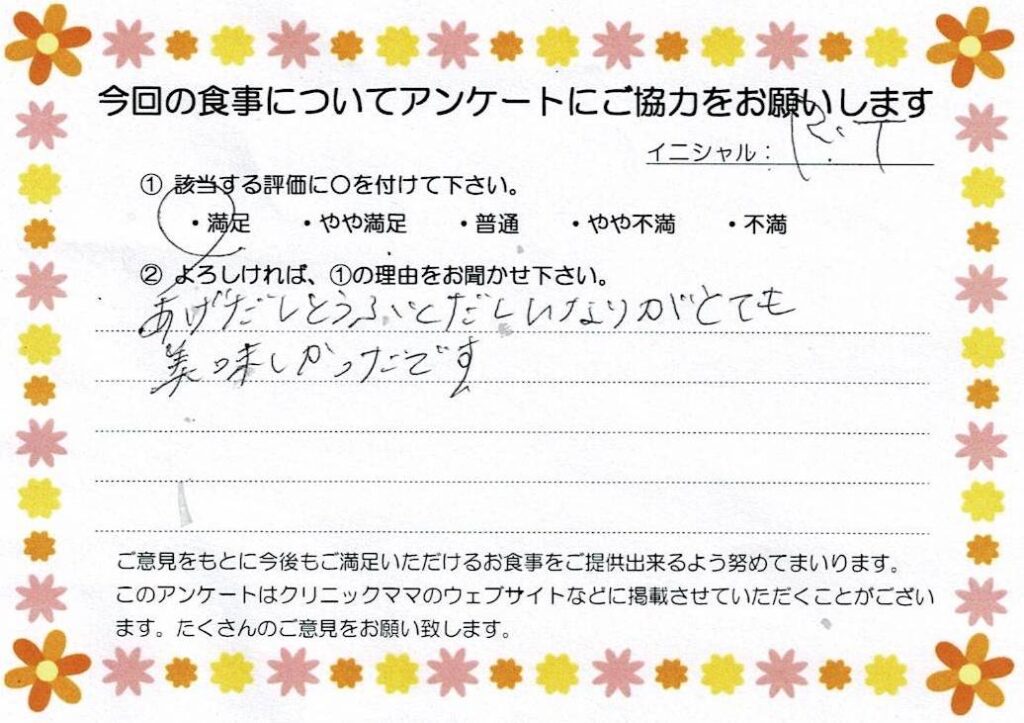 今回の食事についてアンケートにご協力をお願いします
イニシャル: R.T
① 該当する評価に〇を付けて下さい。
・満足 ・やや満足 ・普通 ・やや不満 ・不満
② よろしければ、①の理由をお聞かせ下さい。
あげだしとうふとだしいなりがとても
美味しかったです
ご意見をもとに今後もご満足いただけるお食事をご提供出来るよう努めてまいります。
このアンケートはクリニックママのウェブサイトなどに掲載させていただくことがござい
ます。たくさんのご意見をお願い致します。